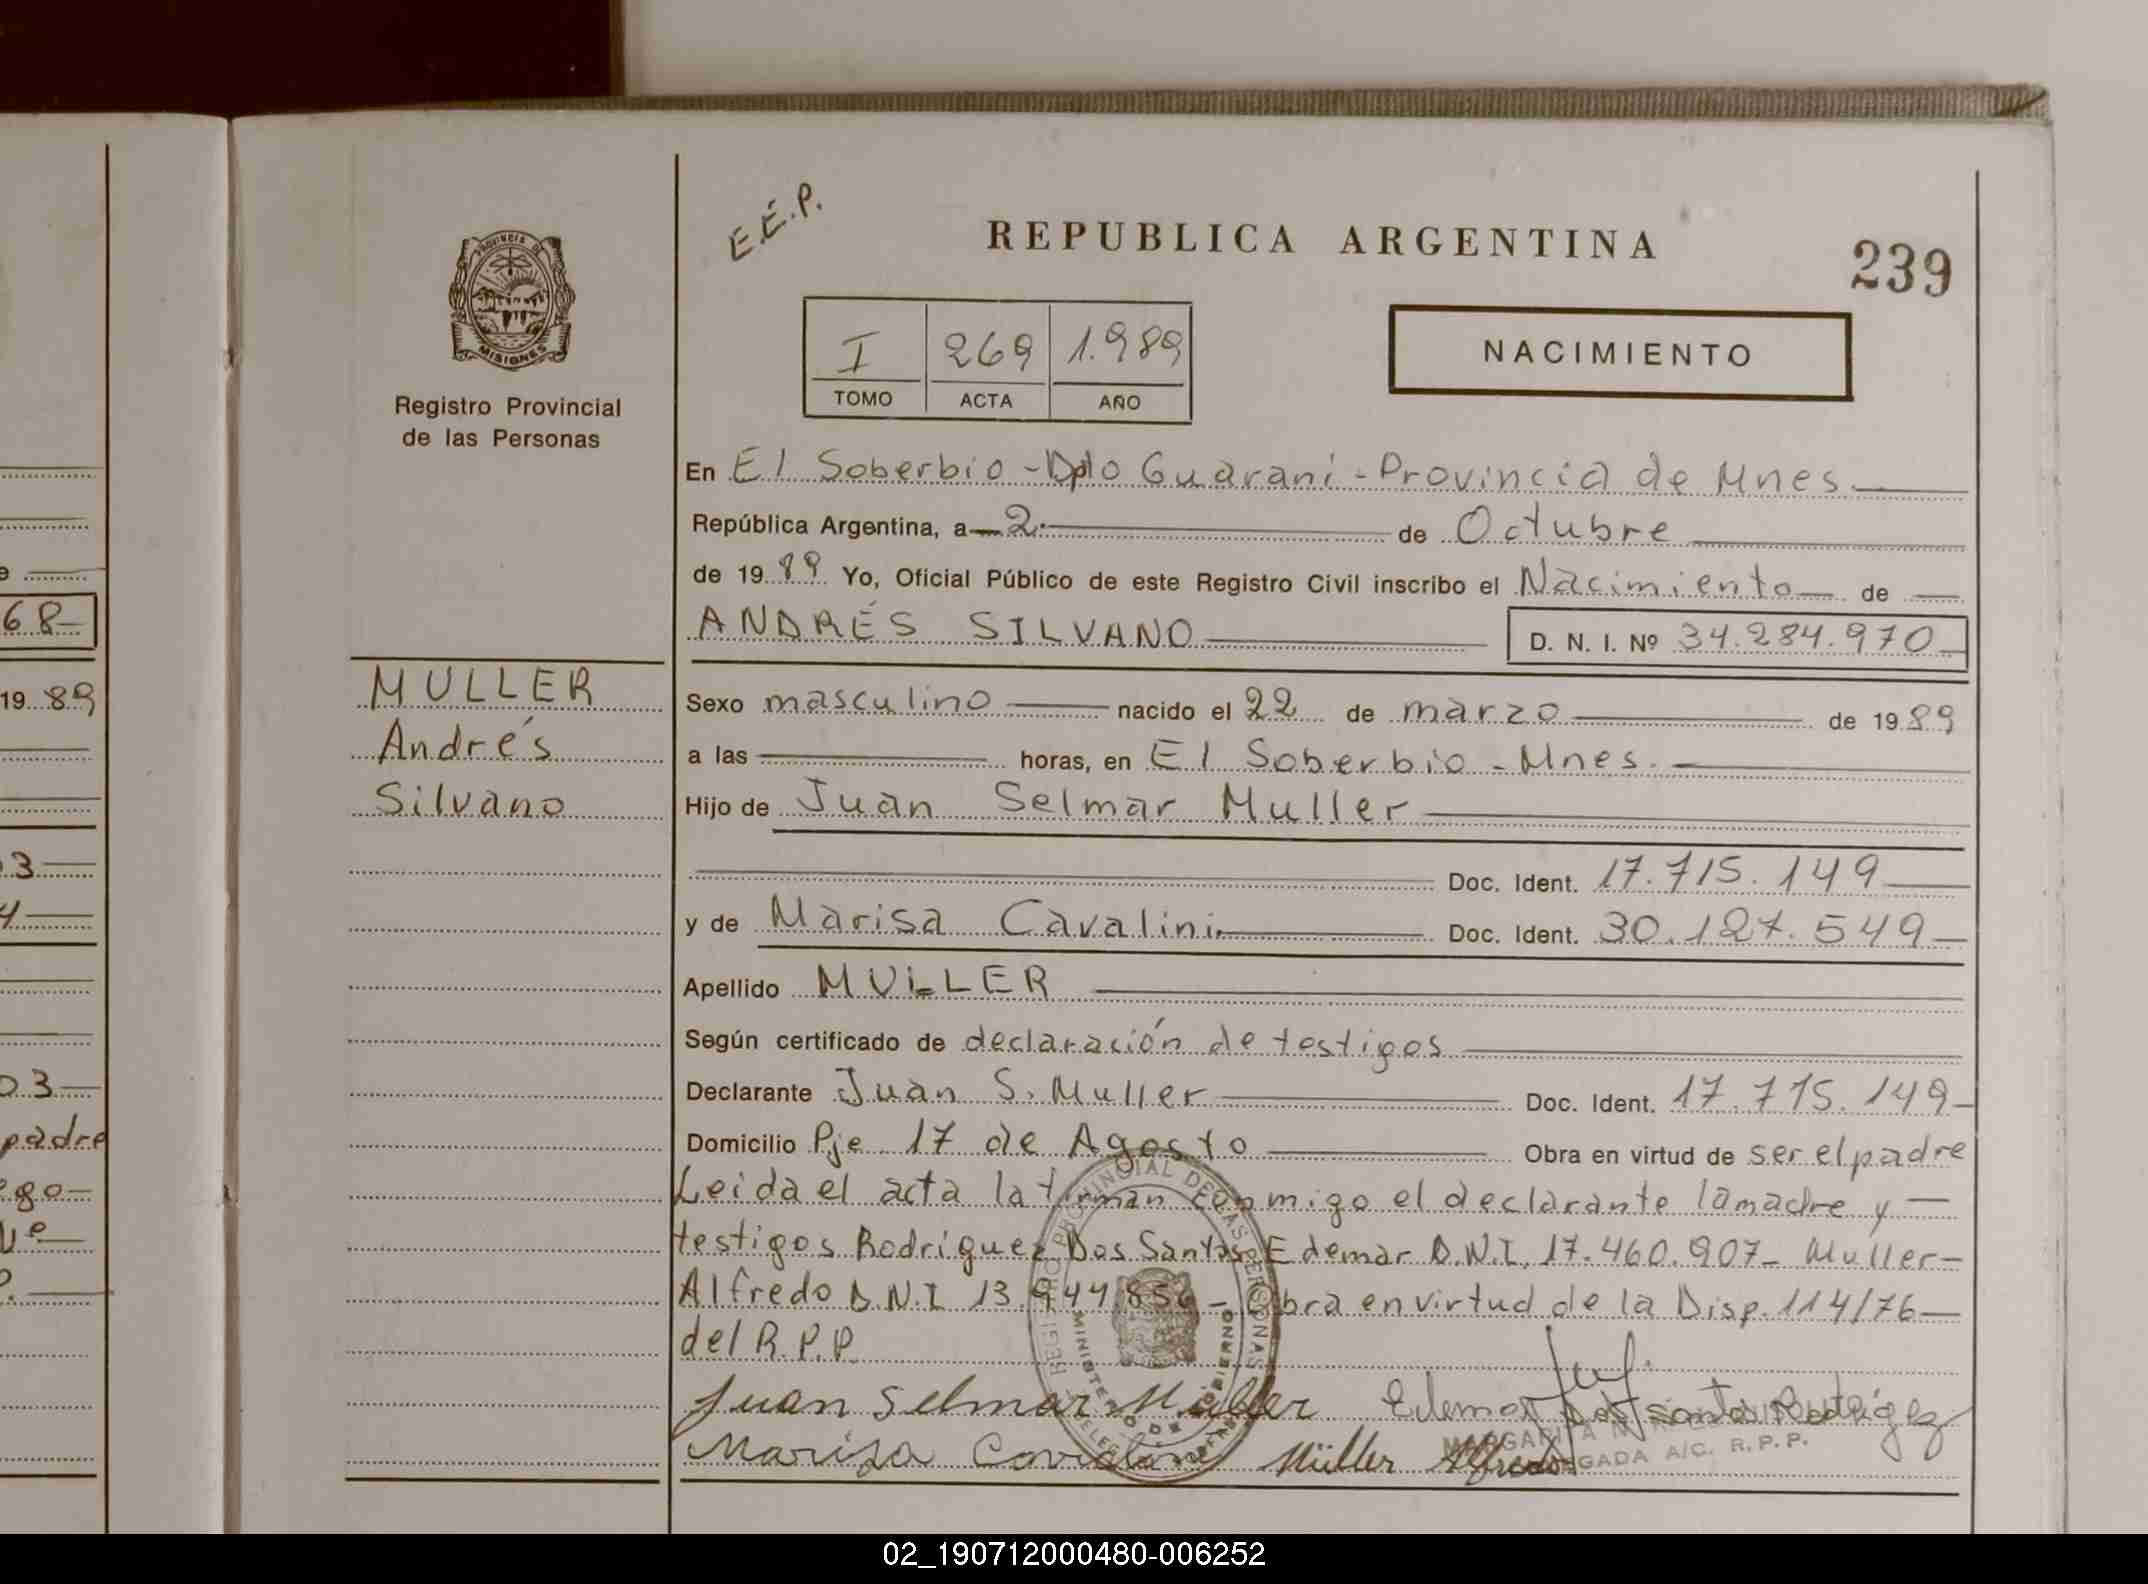 E.E.P.
REPUBLICA ARGENTINA
239
PROVINCIA DE
MISIONES
Registro Provincial
de las Personas
I 269 1.989
TOMO ACTA AÑO
NACIMIENTO
En El Soberbio - Dpto Guaraní - Provincia de Mnes.
República Argentina, a 2 de Octubre
de 1989 Yo, Oficial Público de este Registro Civil inscribo el Nacimiento de
ANDRÉS SILVANO D. N. I. Nº 34.284.970
MULLER
Andrés
Silvano
Sexo masculino nacido el 22 de marzo de 1989
a las horas, en El Soberbio - Mnes.
Hijo de Juan Selmar Muller
Doc. Ident. 17.715.149
y de Marisa Cavalini Doc. Ident. 30.127.549
Apellido MULLER
Según certificado de declaración de testigos
Declarante Juan S. Muller Doc. Ident. 17.715.149
Domicilio Pje 17 de Agosto Obra en virtud de ser el padre
Leida el acta la firman conmigo el declarante la madre y
testigos Rodriguez Dos Santos Edemar D.N.I. 17.460.907 - Muller
Alfredo D.N.I 13.944.856 - Obra en virtud de la Disp. 114/76
del R.P.P.
REGISTRO PROVINCIAL DE LAS PERSONAS
MINISTERIO DE GOBIERNO
Juan Selmar Müller Edemar Dos Santos Rodrigez
Marisa Müller Alfredo
MARGARITA
A/C. R.P.P.
68
19 89
03
padre
02_190712000480-006252